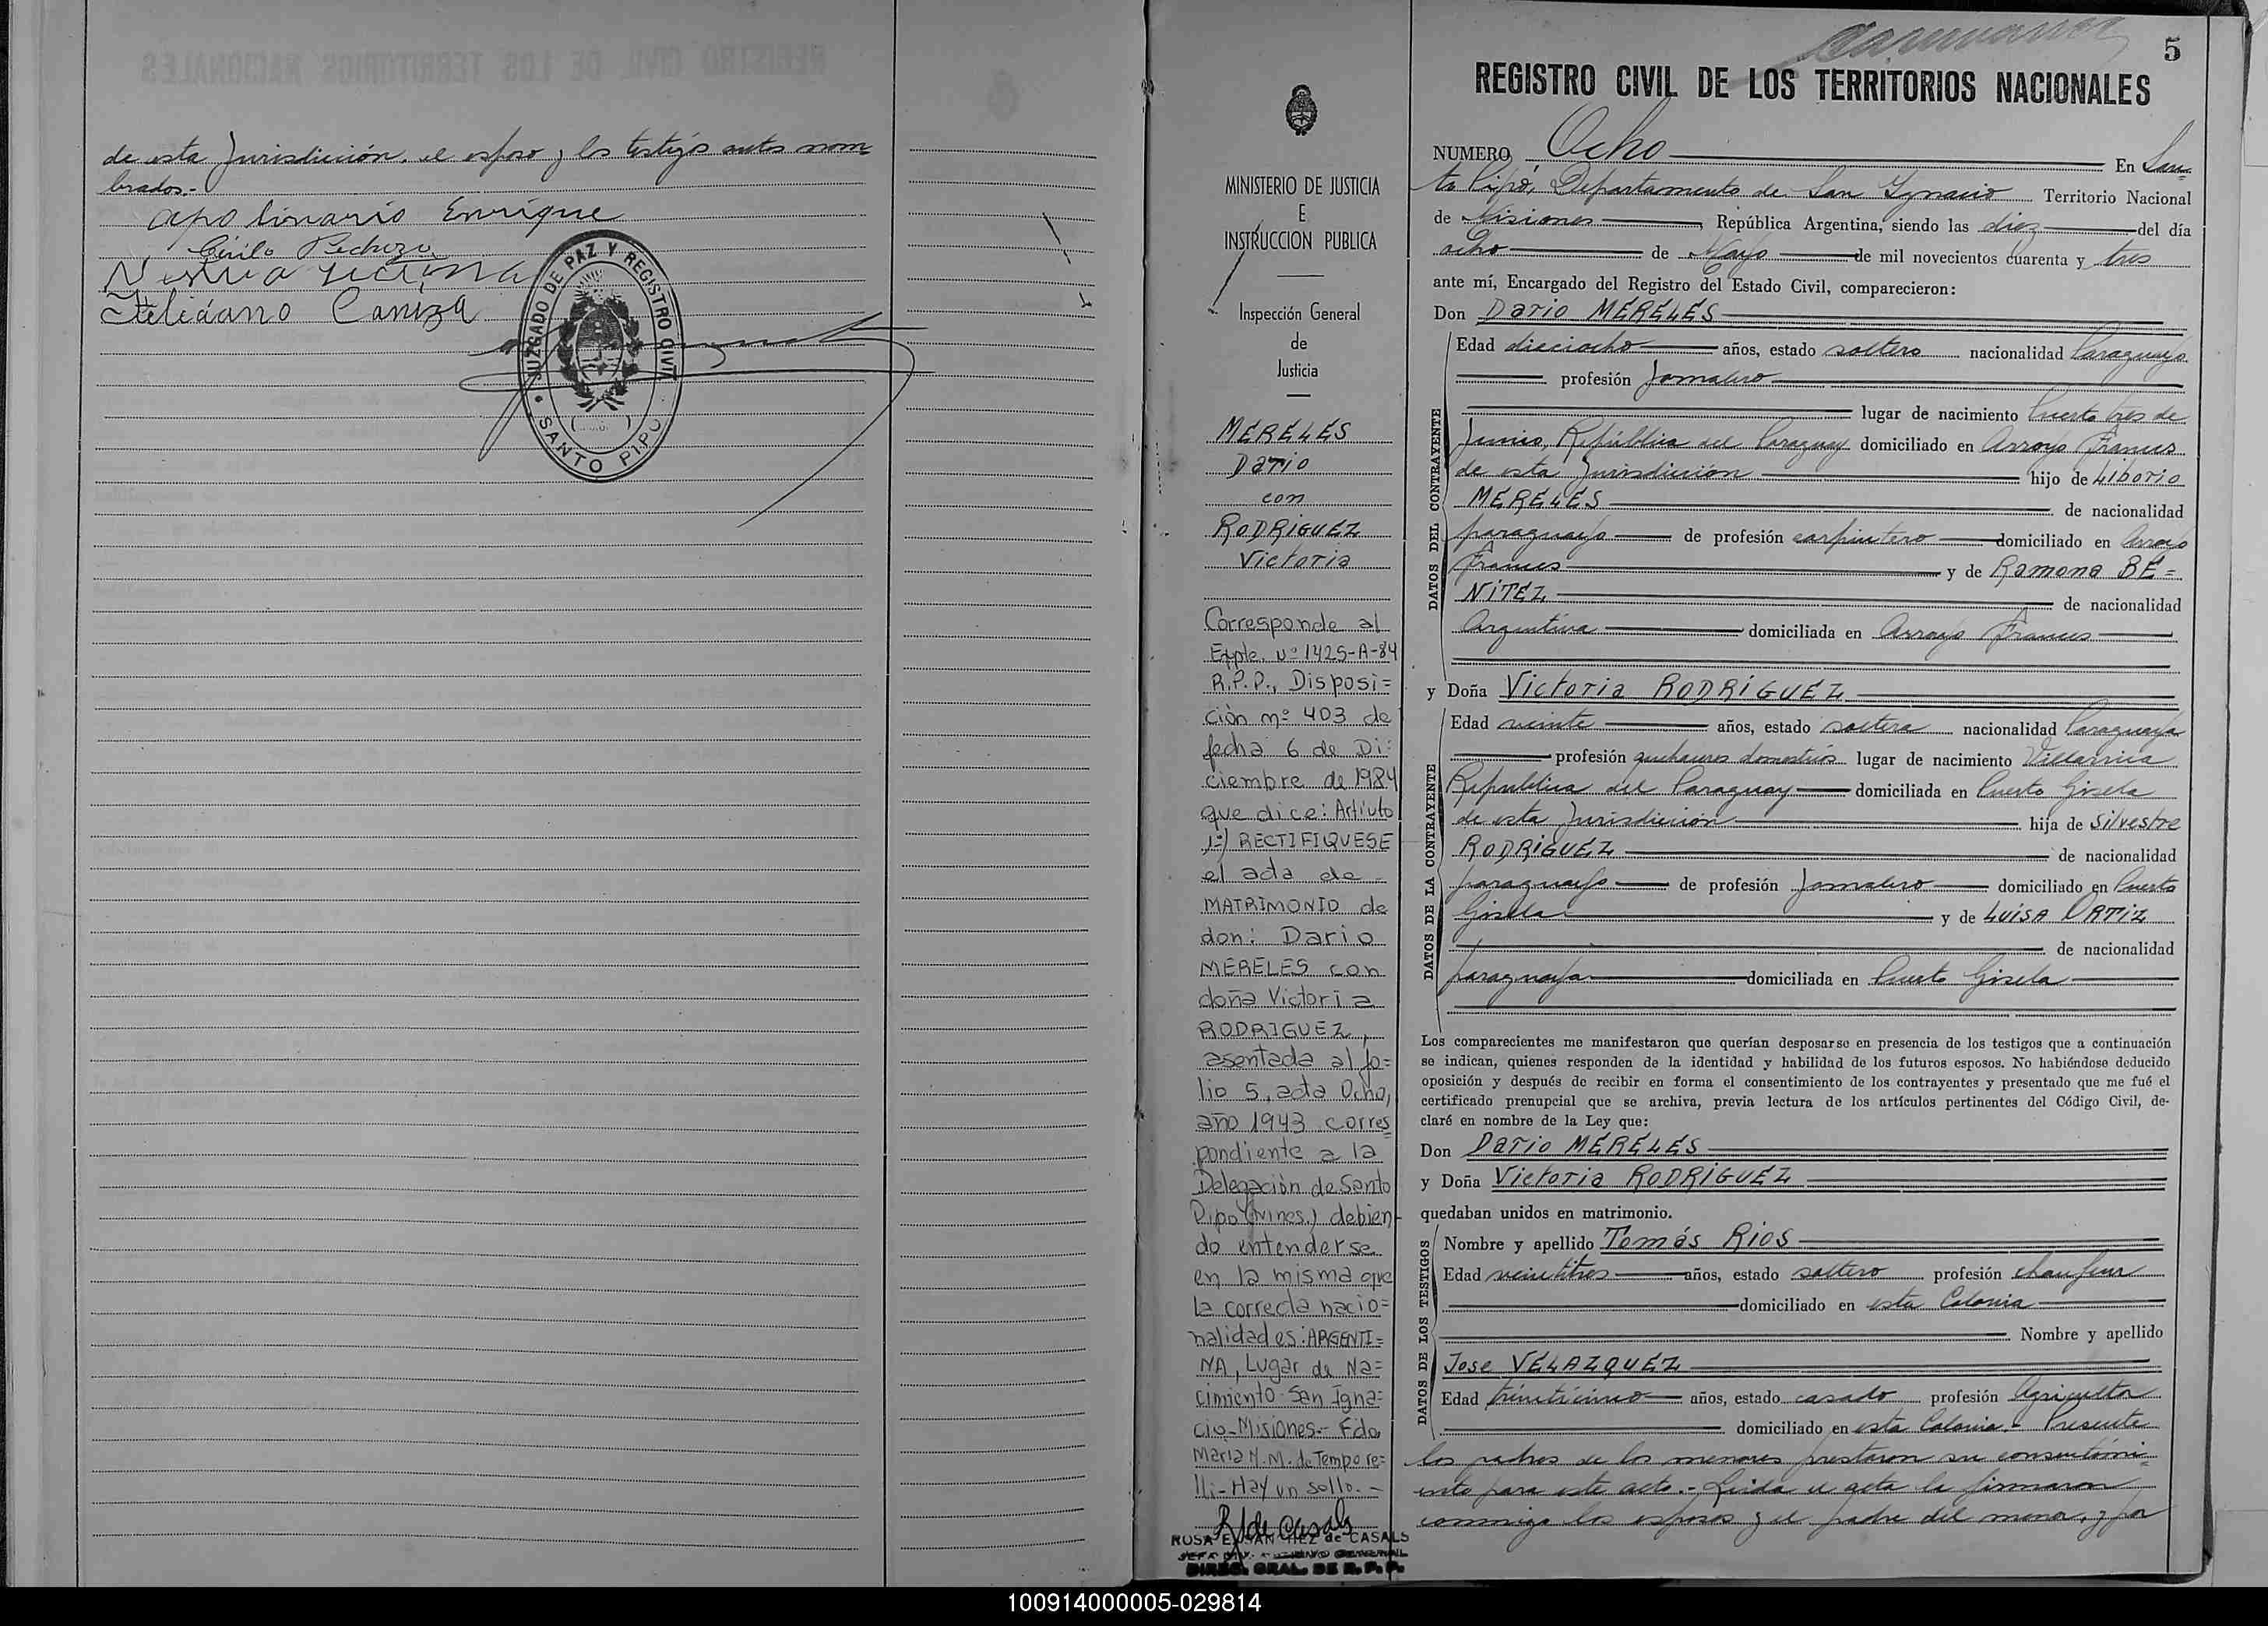 de esta Jurisdicción. el esposo y los testigos antes nom=
brados.-
apolinario Enrique
Cirilo
Feliciano Caniza
JUZGADO DE PAZ Y REGISTRO CIVIL
SANTO PIPO
5
REGISTRO CIVIL DE LOS TERRITORIOS NACIONALES
MINISTERIO DE JUSTICIA
E
INSTRUCCION PUBLICA
Inspección General
de
Justicia
MERELES
Dario
con
RODRIGUEZ
Victoria
Corresponde al
Expte. Nº 1425-A-84
R.P.P., Disposi=
ción nº 403 de
fecha 6 de Di=
ciembre de 1984
que dice: Artículo
1º) RECTIFIQUESE
el acta de
MATRIMONIO de
don: Dario
MERELES con
doña Victoria
RODRIGUEZ,
asentada al fo=
lio 5, acta Ocho,
año 1943 corres
pondiente a la
Delegación de Santo
Pipo (Mnes.) debien-
do entenderse
en la misma que
la correcta nacio=
nalidad es: ARGENTI=
NA, Lugar de Na=
cimiento San Igna=
cio-Misiones.- Fdo.
Maria M. M. de Tempore=
lli- Hay un sello.-
R de Casals
ROSA E. SANCHEZ de CASALS
DIREC. GRAL. DE R. P. P.
NUMERO Ocho En San=
to Pipó, Departamento de San Ygnacio Territorio Nacional
de Misiones, República Argentina, siendo las diez del día
ocho de Mayo de mil novecientos cuarenta y tres
ante mí, Encargado del Registro del Estado Civil, comparecieron:
Don Dario MERELES
DATOS DEL CONTRAYENTE
Edad dieciocho años, estado soltero nacionalidad Paraguayo
profesión Jornalero
lugar de nacimiento Puerto tres de
Junio, República del Paraguay domiciliado en Arroyo Frances
de esta Jurisdiccion hijo de Liborio
MERELES de nacionalidad
paraguayo de profesión carpintero domiciliado en Arroyo
Frances y de Ramona BE=
NITEZ de nacionalidad
Argentina domiciliada en Arroyo Frances
y Doña Victoria RODRIGUEZ
DATOS DE LA CONTRAYENTE
Edad veinte años, estado soltera nacionalidad Paraguaya
profesión quehaceres domesticos lugar de nacimiento Villarrica
Republica del Paraguay domiciliada en Puerto Gisela
de esta Jurisdicción hija de Silvestre
RODRIGUEZ de nacionalidad
paraguayo de profesión Jornalero domiciliado en Puerto
Gisela y de LUISA ORTIZ
de nacionalidad
paraguaya domiciliada en Puerto Gisela
Los comparecientes me manifestaron que querían desposarse en presencia de los testigos que a continuación
se indican, quienes responden de la identidad y habilidad de los futuros esposos. No habiéndose deducido
oposición y después de recibir en forma el consentimiento de los contrayentes y presentado que me fué el
certificado prenupcial que se archiva, previa lectura de los artículos pertinentes del Código Civil, de-
claré en nombre de la Ley que:
Don Dario MERELES
y Doña Victoria RODRIGUEZ
quedaban unidos en matrimonio.
DATOS DE LOS TESTIGOS
Nombre y apellido Tomás Rios
Edad veintitres años, estado soltero profesión chaufeur
domiciliado en esta Colonia
Nombre y apellido
Jose VELAZQUEZ
Edad treinticinco años, estado casado profesión Agricultor
domiciliado en esta Colonia.- Presente
los padres de los menores prestaron su consentimi=
ento para este acto.- Leida el acta la firmaron
conmigo los esposos y el padre del menor, y por
100914000005-029814